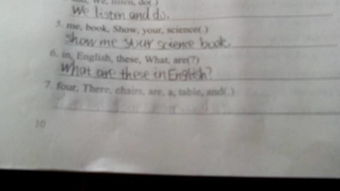 We, listen, do(.)
We listen and do.
5. me, book, Show, your, science(.)
Show me your science book.
6. in, English, these, What, are(?)
What are these in English?
7. four, There, chairs, are, a, table, and(.)
10